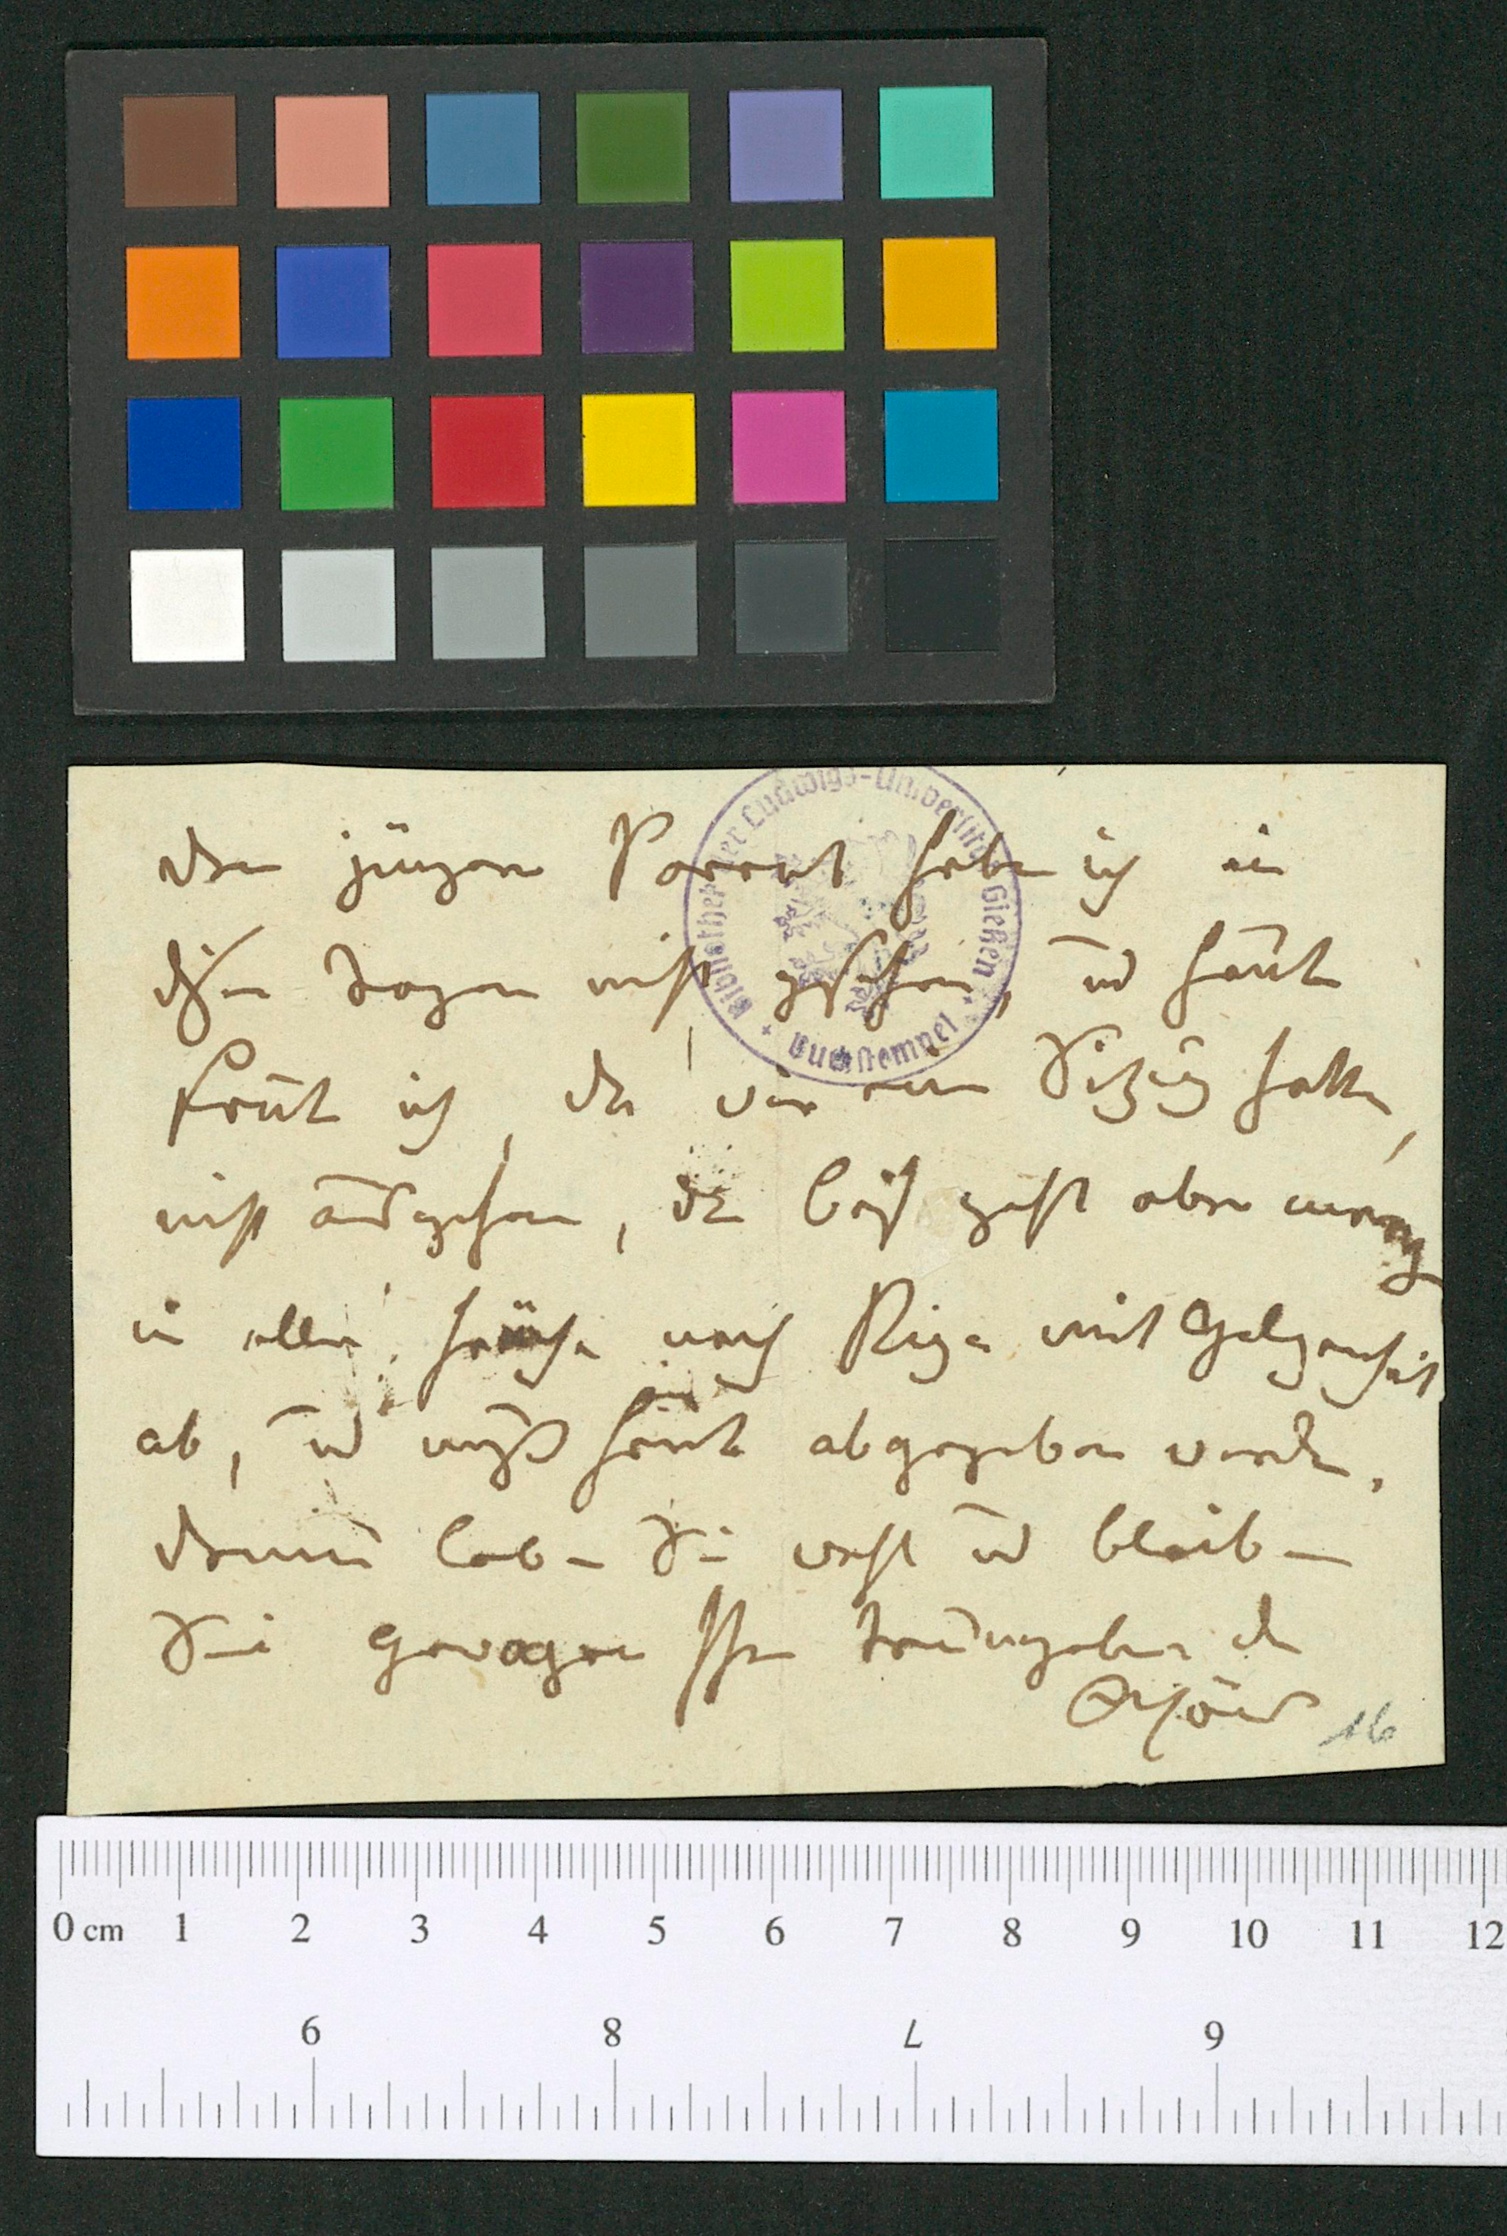 den jungen Parrot habe ich in
diesen Tagen nicht gesehen, und heute
konnte ich, da wir eine Sitzung hatten,
nicht ausgehen, der Brief geht aber morgen
in aller Frühe nach Riga mit Gelegenheit
ab, und muß heute abgegeben werden.
Darum leben Sie wohl und bleiben
Sie gewogen Ihrem treuergebenen
16
Bibliothek der Ludwigs-Universität Gießen
Buchstempel
0 cm 1 2 3 4 5 6 7 8 9 10 11 12
6 8 7 9